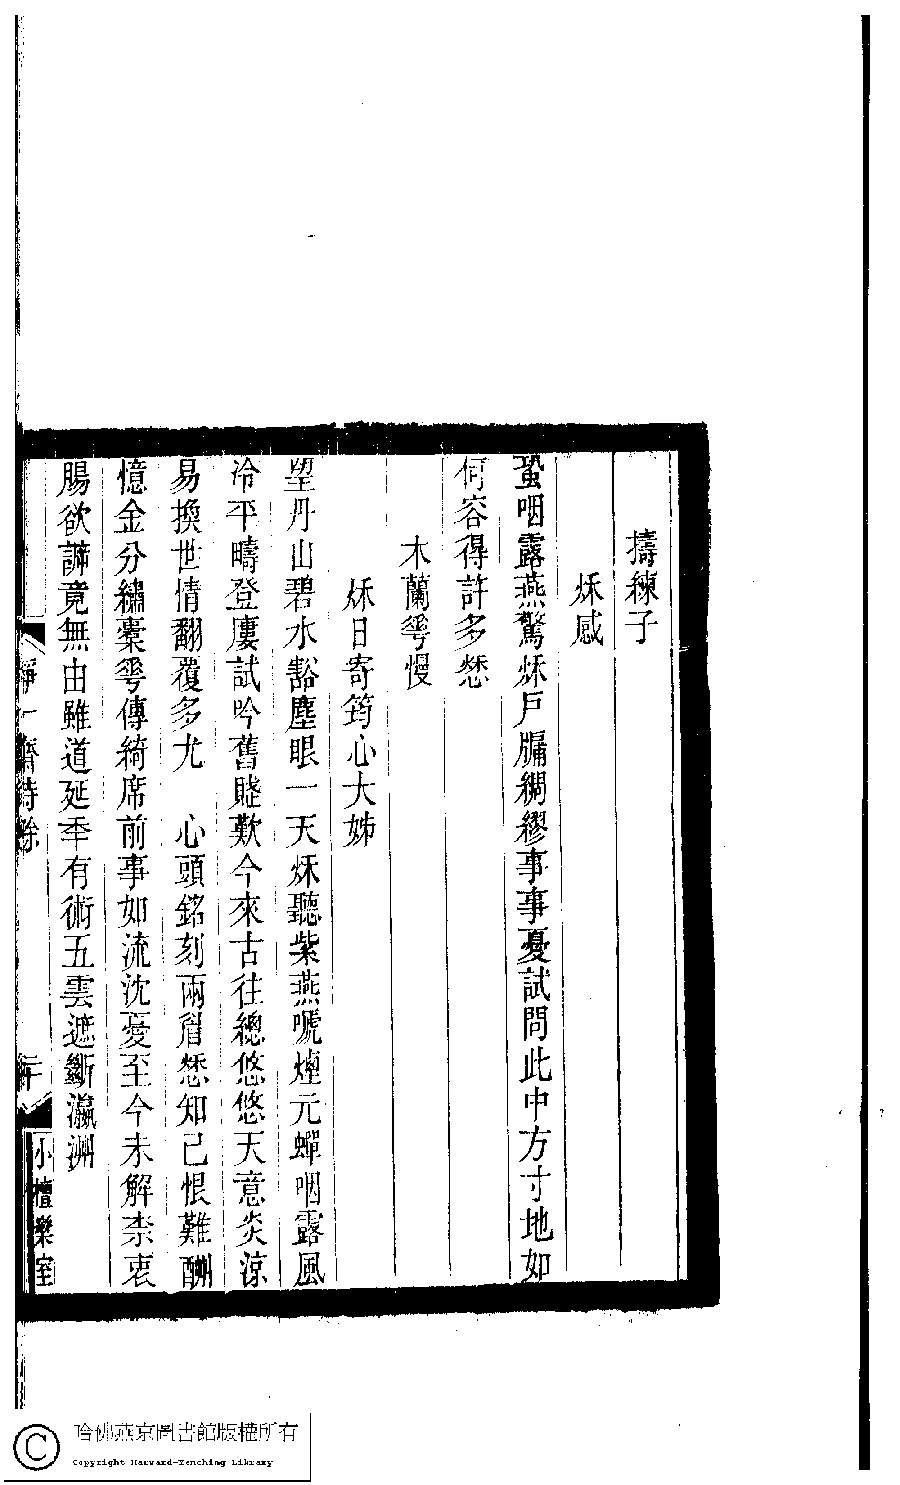 擣練子
秌感
蛩咽露燕驚秌戶牖綢繆事事憂試問此中方寸地如
何容得許多愁
木蘭蕚慢
秌日寄筠心大姊
望丹山碧水豁塵眼一天秌聽紫燕嗁煙元蟬咽露風
冷平疇登廔試吟舊賤歎今來古往總悠悠天意炎涼
易換世情翻覆多尤　心頭銘刻兩眉愁知己恨難酬
憶金分繡橐蕚傳綺席前事如流沈憂至今未解柰衷
腸欲諦竟無由雖道延秊有術五雲遮斷瀛洲
靜一齋詩餘
小檀欒室
哈佛燕京圖書館版權所有
Copyright Harvard-Yenching Library